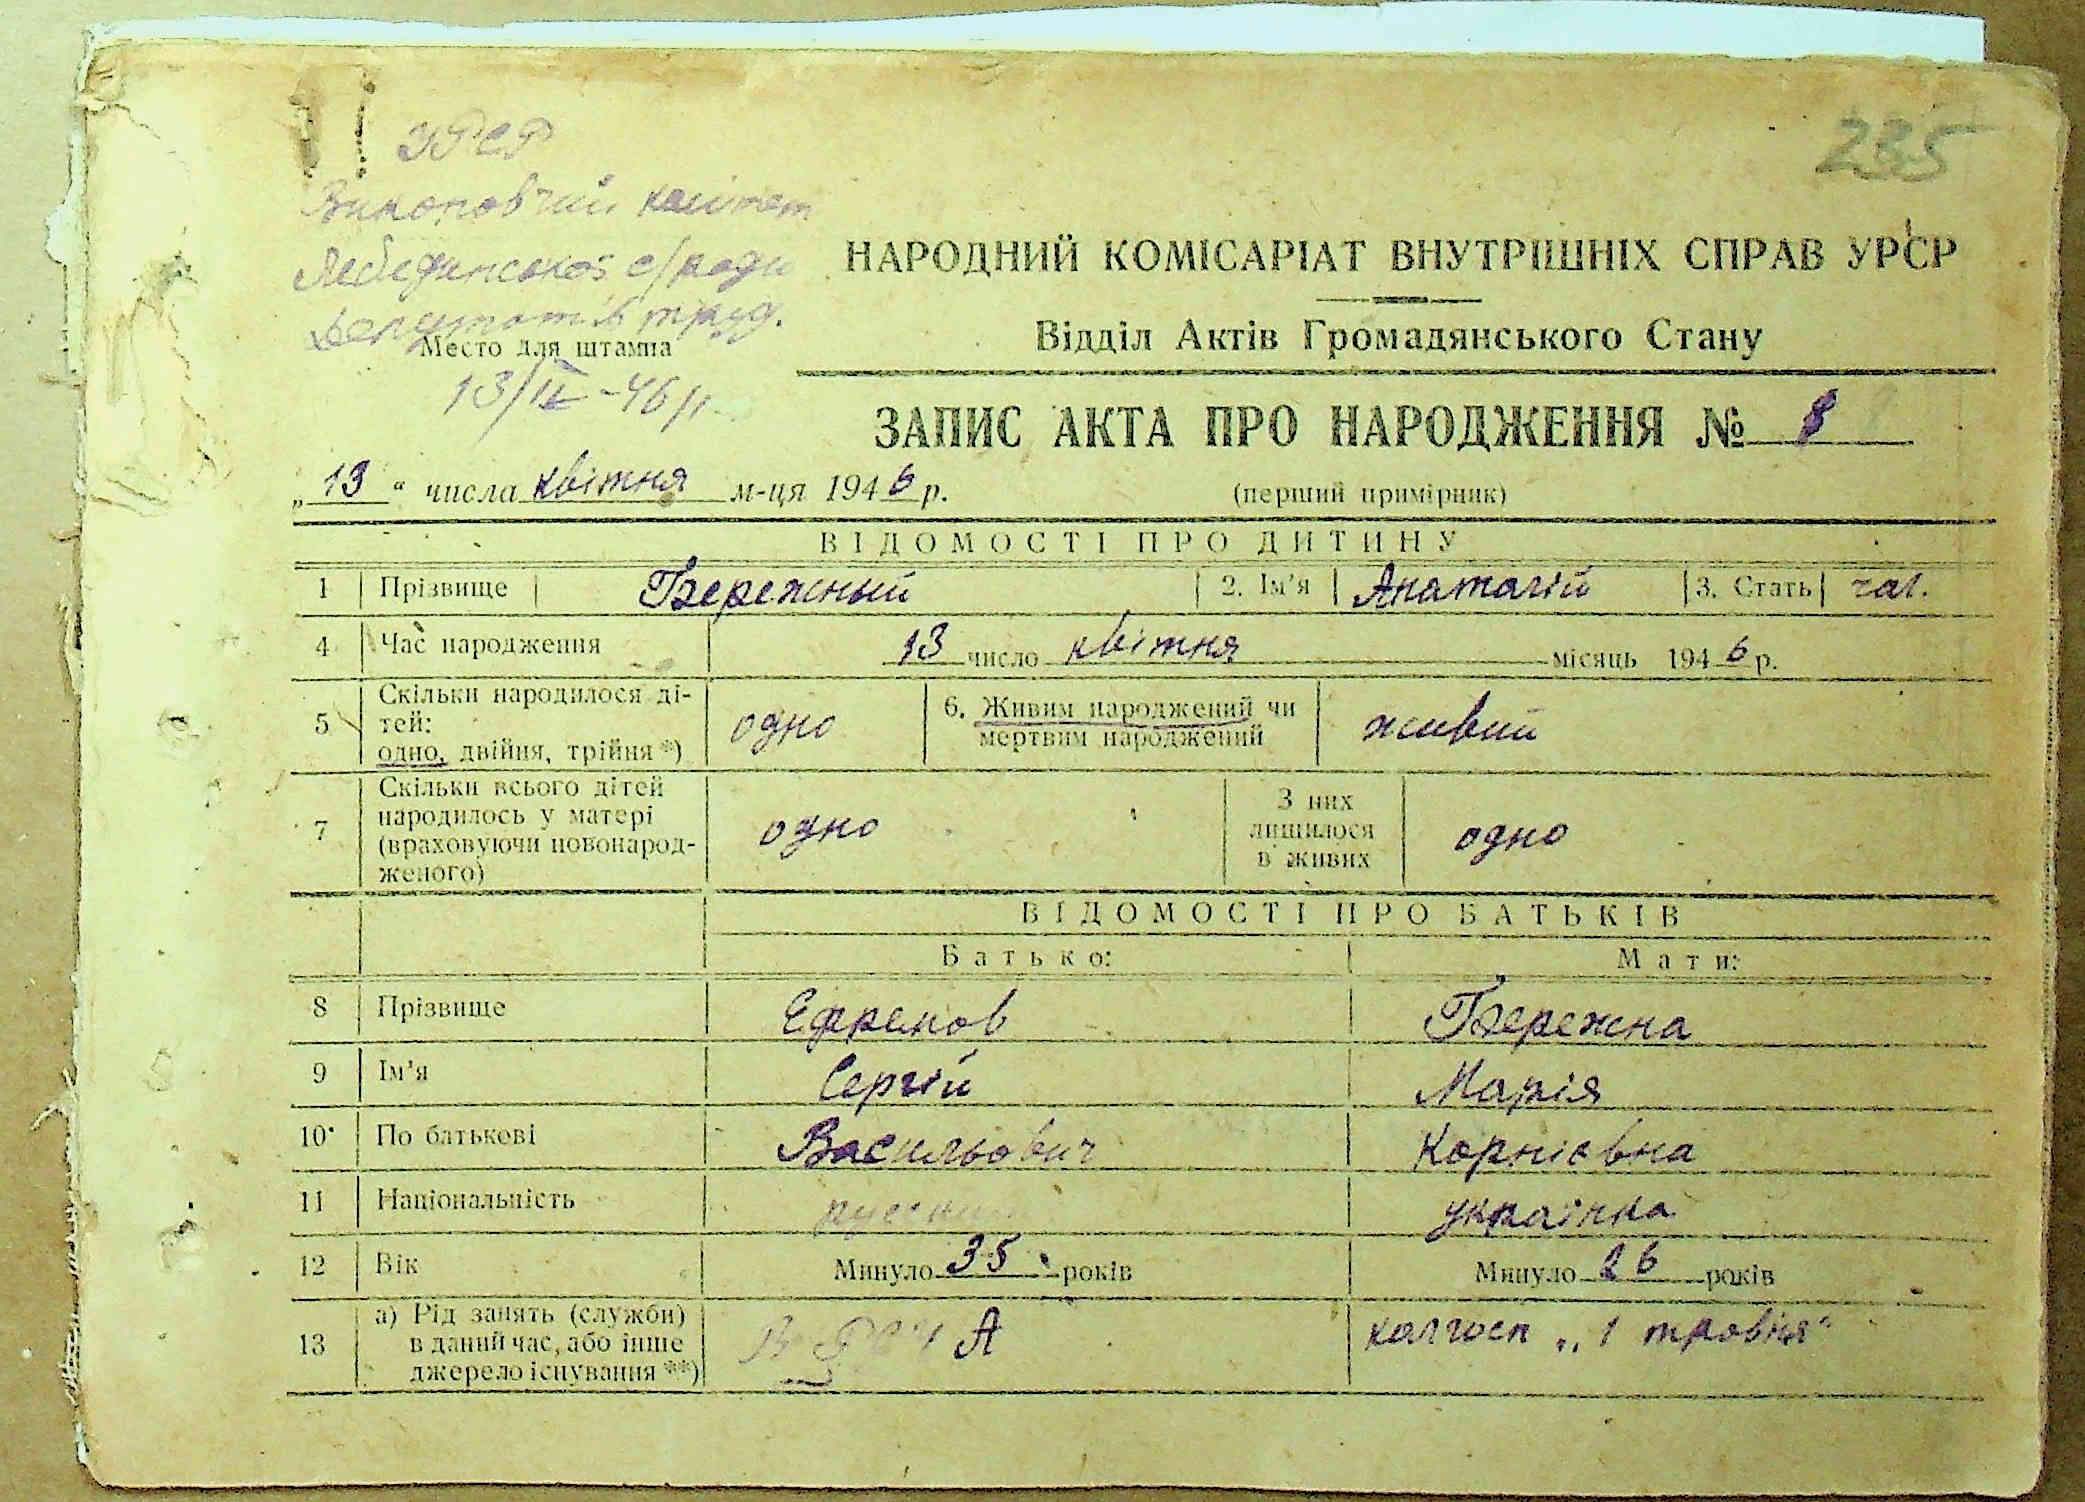 235
УРСР
Виконовчий комітет
Лебединської с/ради
Депутатів труд.
Место для штампа
13/IV-46 р.
НАРОДНИЙ КОМІСАРІАТ ВНУТРІШНІХ СПРАВ УРСР
Відділ Актів Громадянського Стану
ЗАПИС АКТА ПРО НАРОДЖЕННЯ № 8
„13" числа квітня м-ця 1946 р. (перший примірник)
ВІДОМОСТІ ПРО ДИТИНУ
1 Прізвище Бережный 2. Ім'я Анаталій 3. Стать чол.
4 Час народження 13 число квітня місяць 1946 р.
5 Скільки народилося ді-
тей:
одно, двійня, трійня *) одно 6. Живим народжений чи
мертвим народжений живий
7 Скільки всього дітей
народилось у матері
(враховуючи новонарод-
женого) одно З них
лишилося
в живих одно
ВІДОМОСТІ ПРО БАТЬКІВ
Батько: Мати:
8 Прізвище Ефремов Бережна
9 Ім'я Сергій Марія
10 По батькові Васильович Корнієвна
11 Національність руский українка
12 Вік Минуло 35 років Минуло 26 років
13 а) Рід занять (служби)
в даний час, або інше
джерело існування **) А колгосп „1 травня"